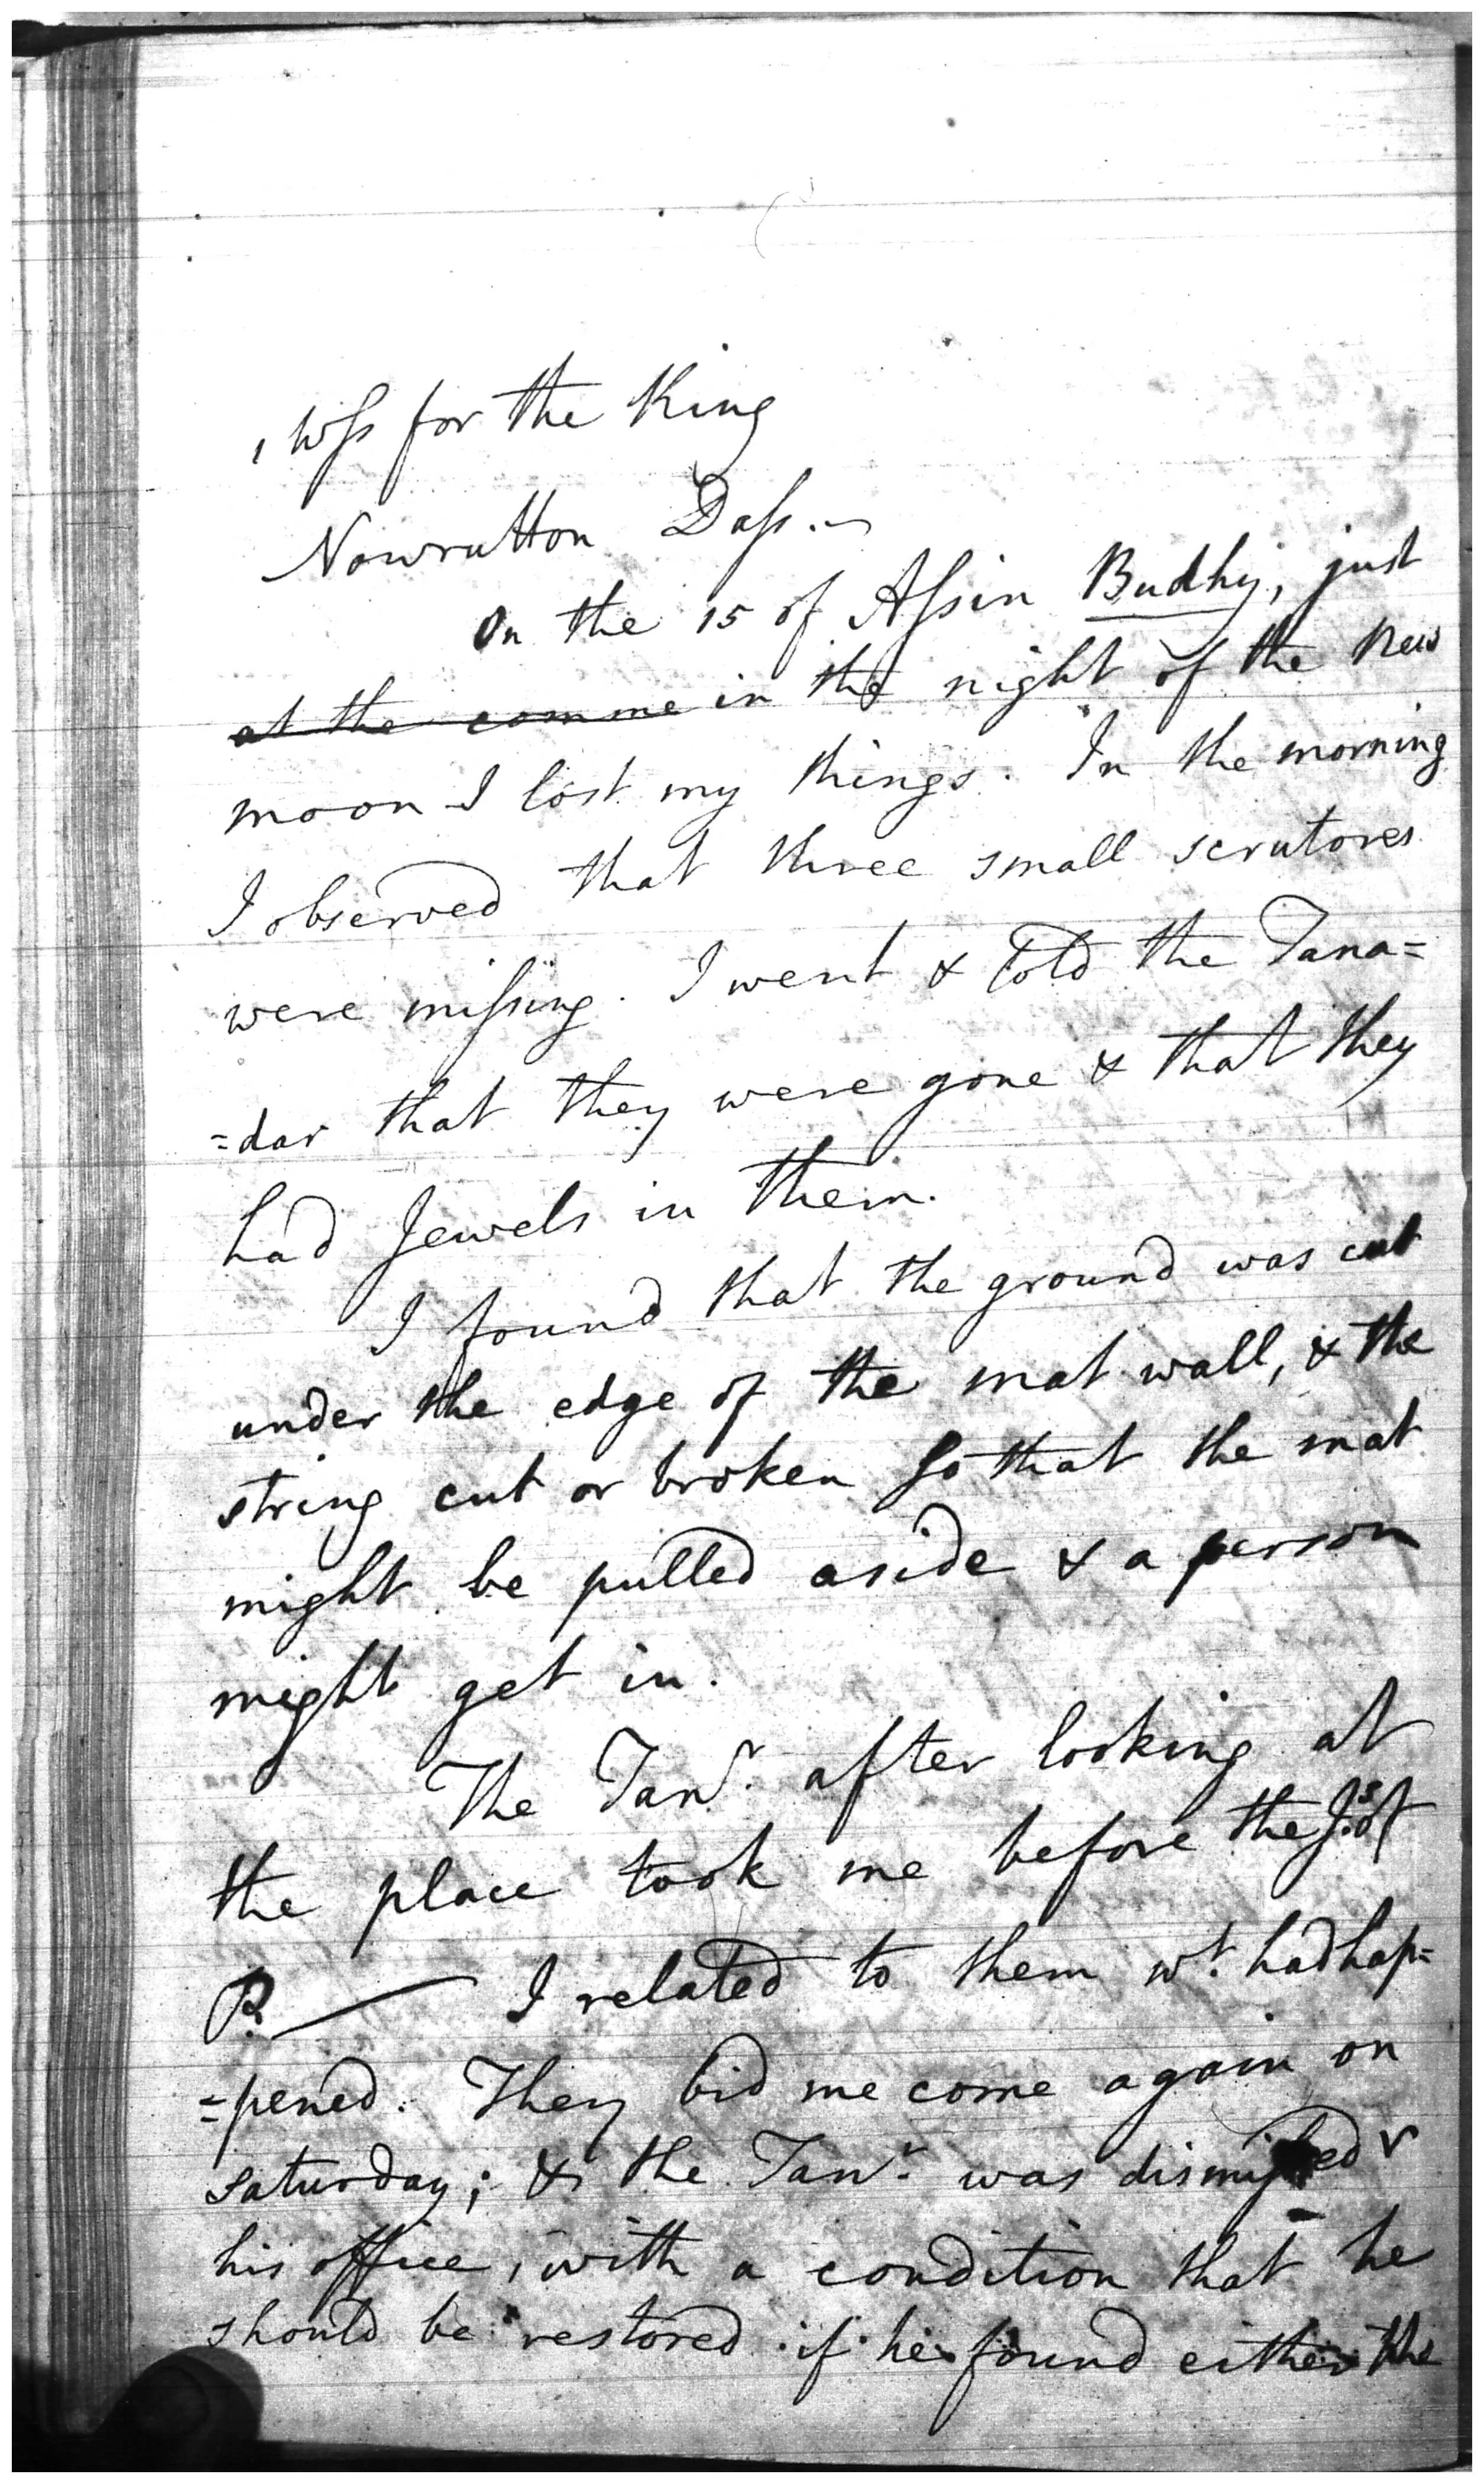 1 Wss for the King
Nowrutton Dass.~
On the 15 of Assin Budhy, just
at the comme in the night of the New
moon I lost my things. In the morning
I observed that three small scrutores
were missing. I went & told the Tana=
=dar that they were gone & that they
had Jewels in them.
I found that the ground was cut
under the edge of the mat wall, & the
string cut or broken so that the mat
might be pulled aside & a person
might get in.
The Tanr. after looking at
the place took me before the Js. of
P. — I related to them wt. had hap=
=pened. They bid me come again on
saturday; & the Tanr. was dismissed
his office, with a condition that he
should be restored if he found either the